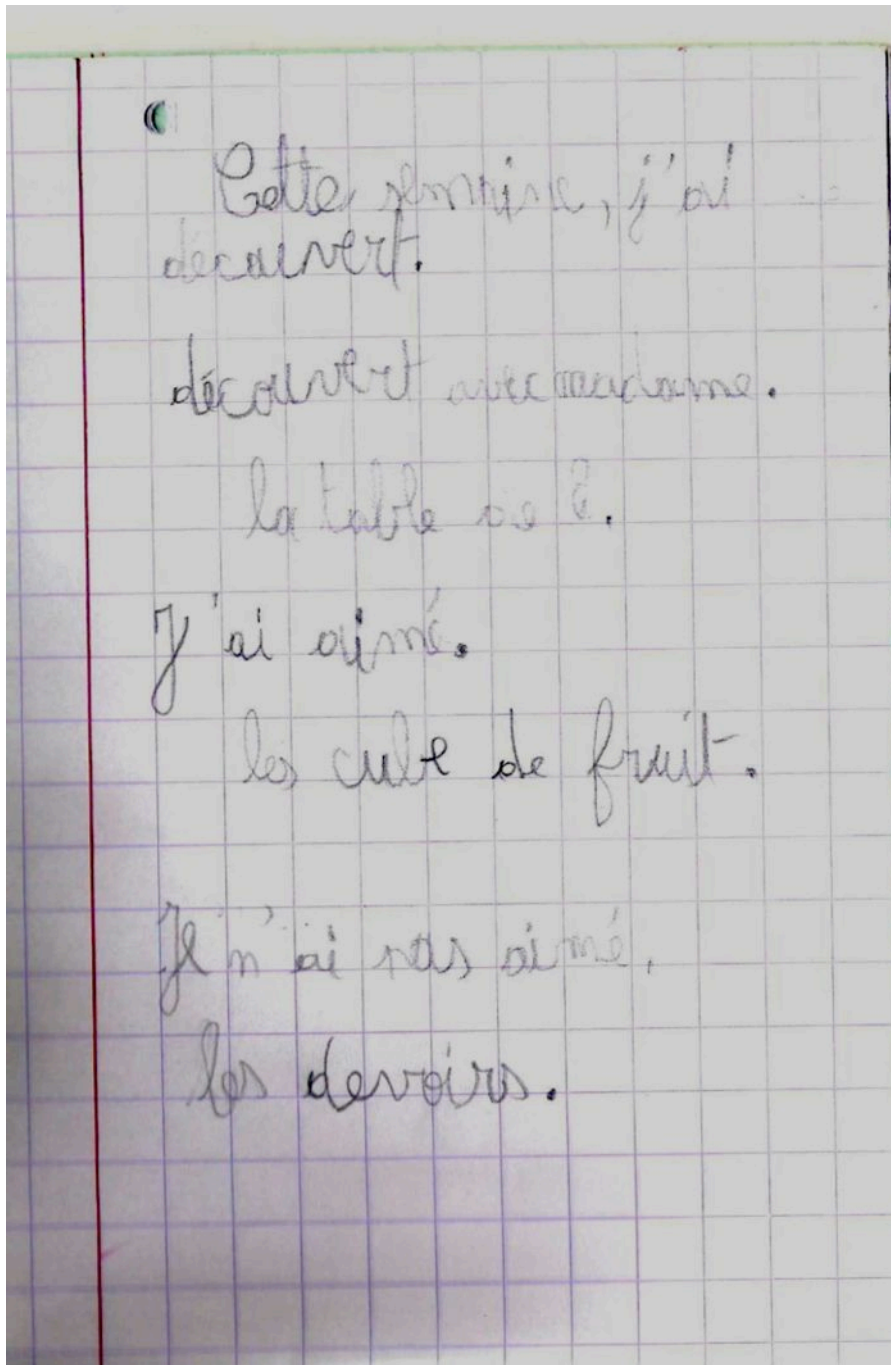 Cette semaine, j'ai
découvert.
découvert avec madame.
la table de 2.
J'ai aimé.
les cube de fruit.
Je n'ai pas aimé.
les devoirs.